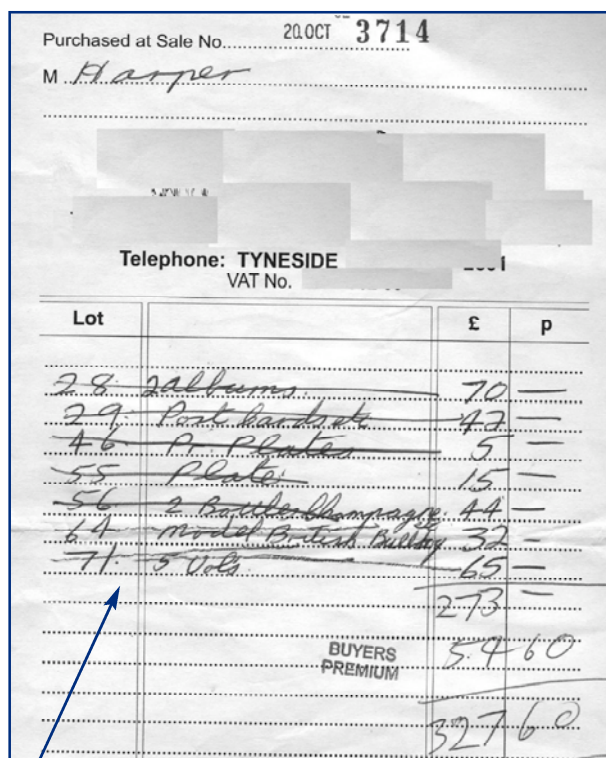 Purchased at Sale No. 20.OCT 3714
M Harper
Telephone: TYNESIDE
VAT No.
Lot £ p
28 2 albums. 70 —
29 Postcards etc 42 —
46 Pr. Plates 5 —
55 Plate 15 —
56 2 Bottles Champagne. 44 —
64 Model British Bulldog 32 —
71. 5 Vols 65 —
273 —
BUYERS PREMIUM 54 60
327 60